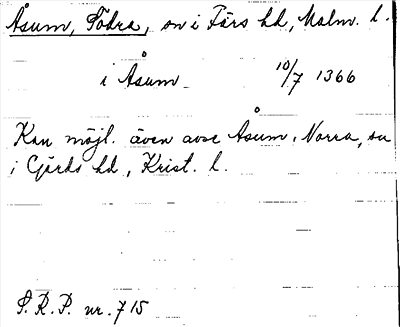 Åsum, Södra, sn i Färs hd, Malm. l.
i Åsum 10/7 1366
Kan möjl. även avse Åsum, Norra, sn
i Gärds hd, Krist. l.
S.R.P. nr. 715